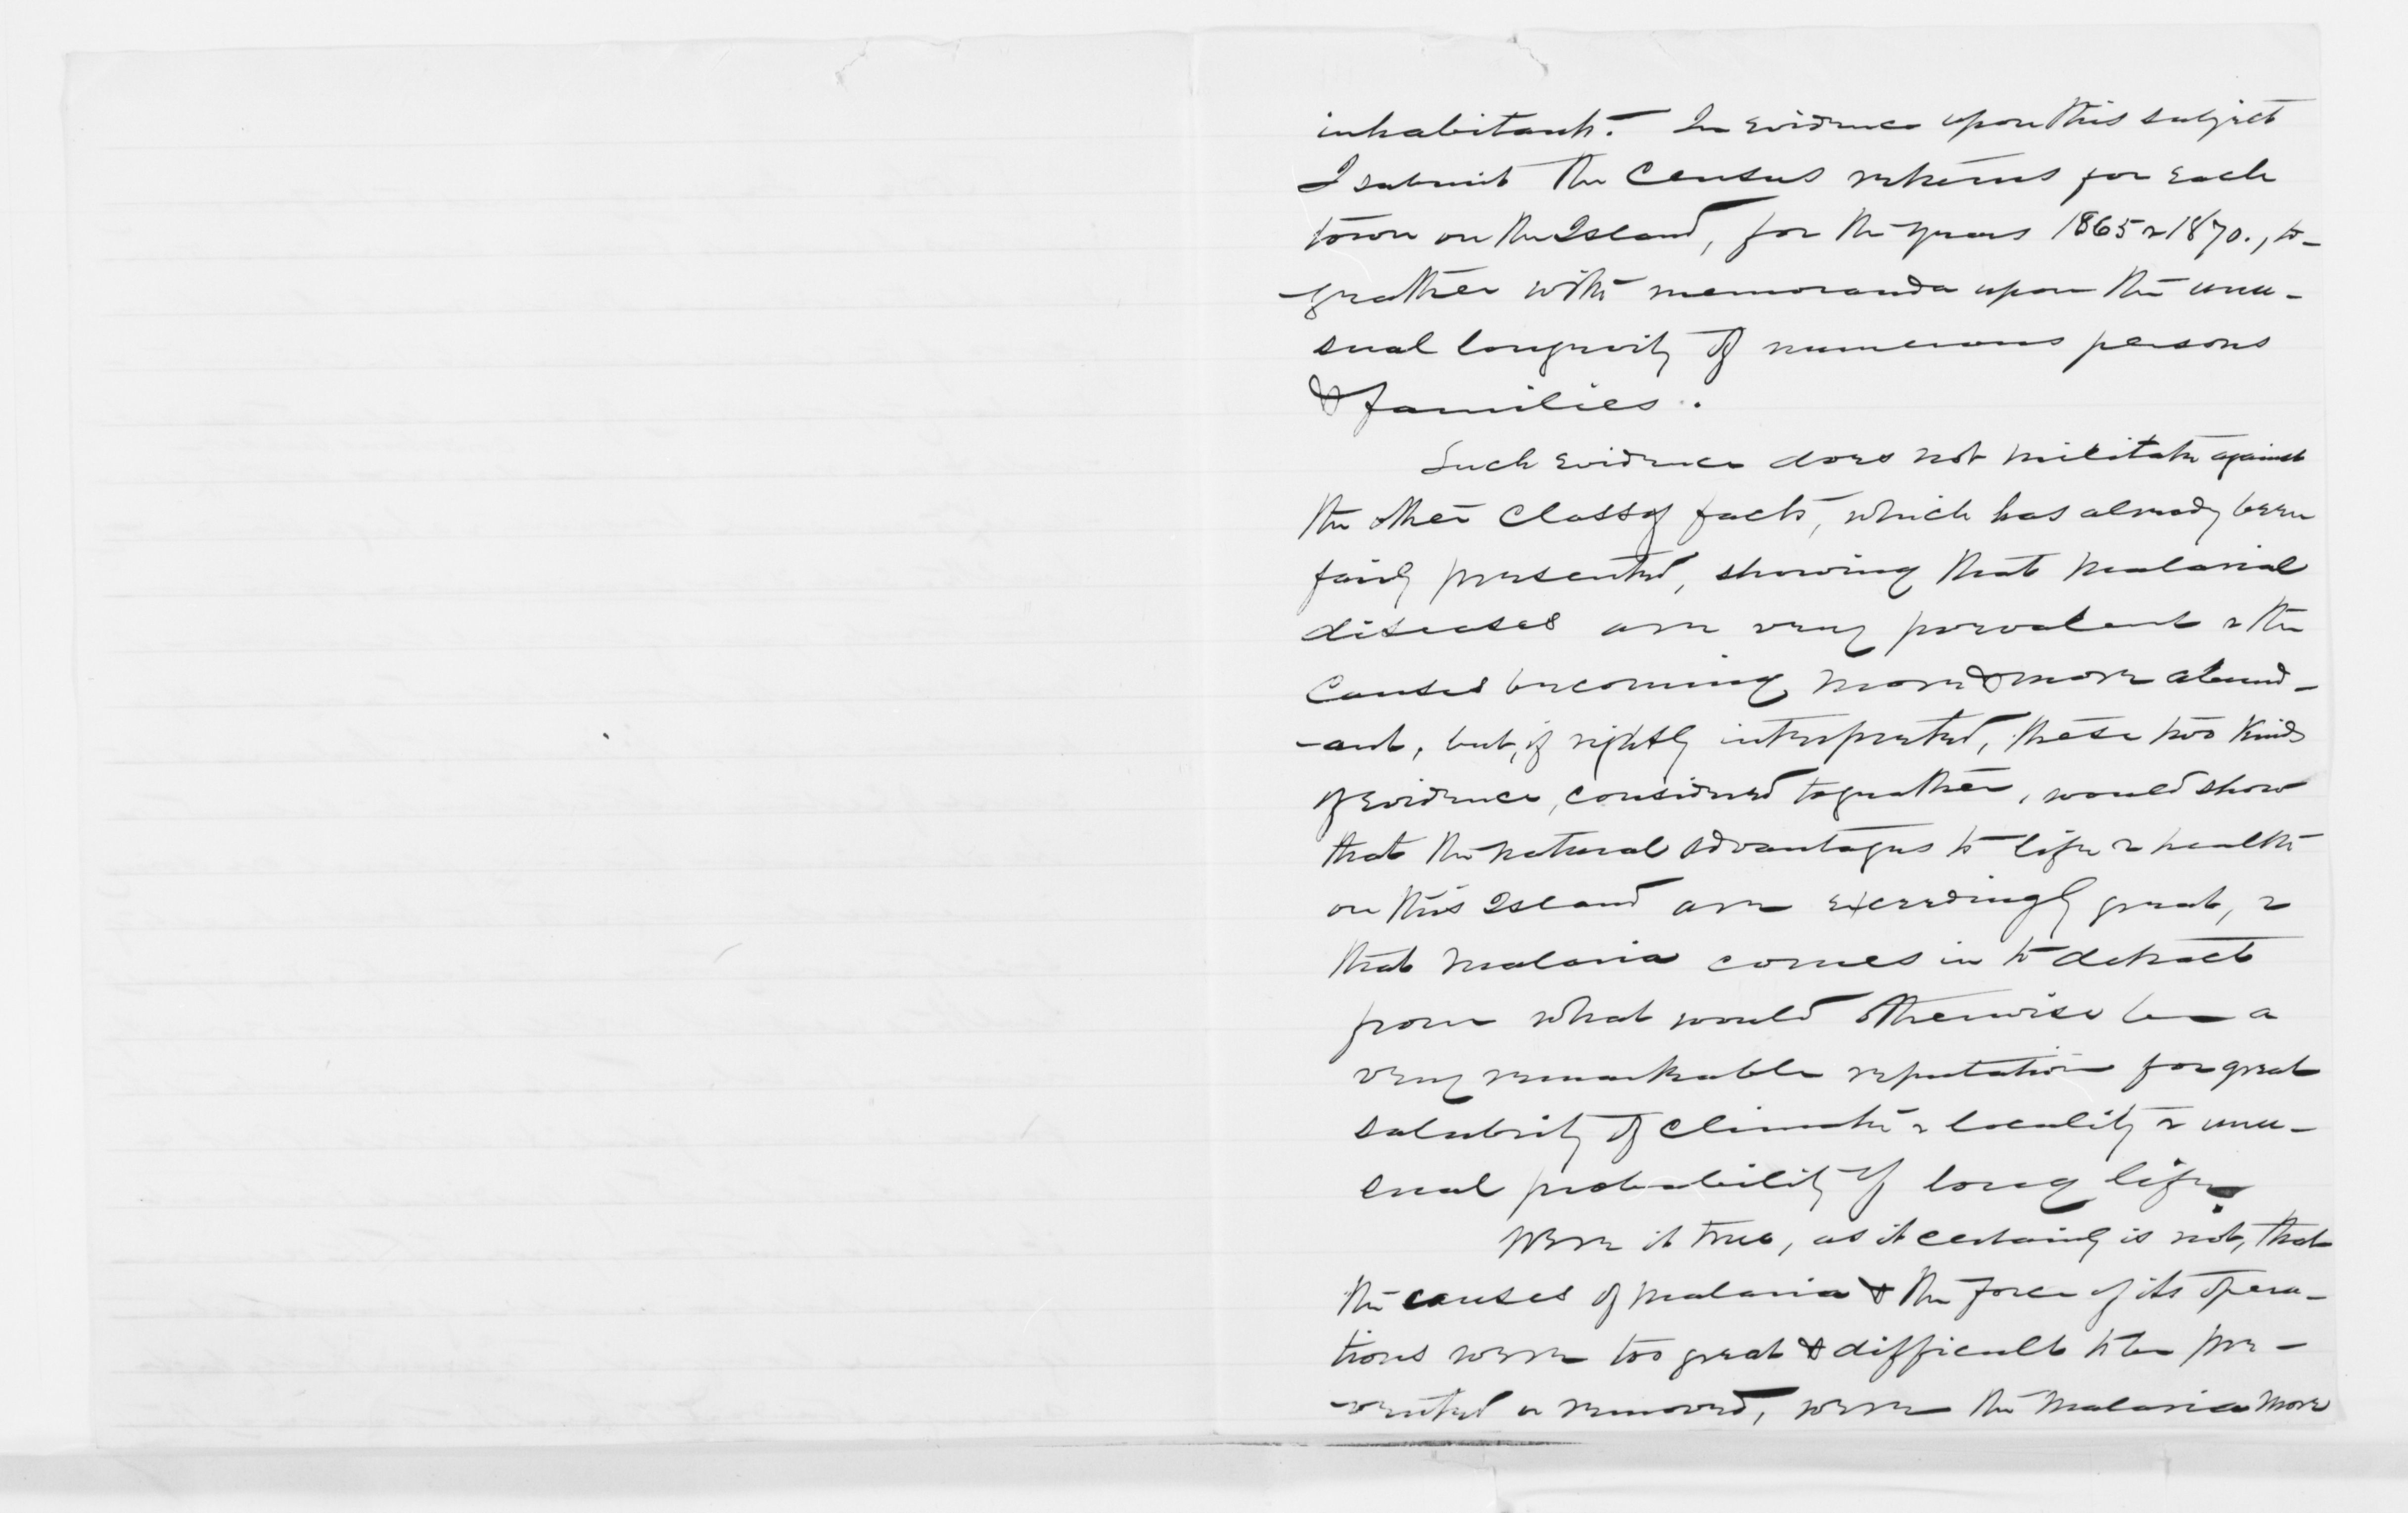 inhabitants. In evidence upon this subject
I submit the Census returns for each
town on the Island, for the years 1865 & 1870., to-
-geather with memoranda upon the unu-
sual longevity of numerous persons
& families.
Such evidence does not militate against
the other class of facts, which has already been
fairly presented, showing that malarial
diseases are very prevalent & the
causes becoming more & more abund-
-ant, but, if rightly interpreted, these two kinds
of evidence, considered togeather, would show
that the natural advantages to life & health
on this Island are exceedingly great, &
that malaria comes in to detract
from what would otherwise be a
very remarkable reputation for great
salubrity of climate & locality & unu-
sual probability of long life.
Were it true, as it certainly is not, that
the causes of malaria & the force of its opera-
tions were too great & difficult to be pre-
-vented or removed, were the malaria more